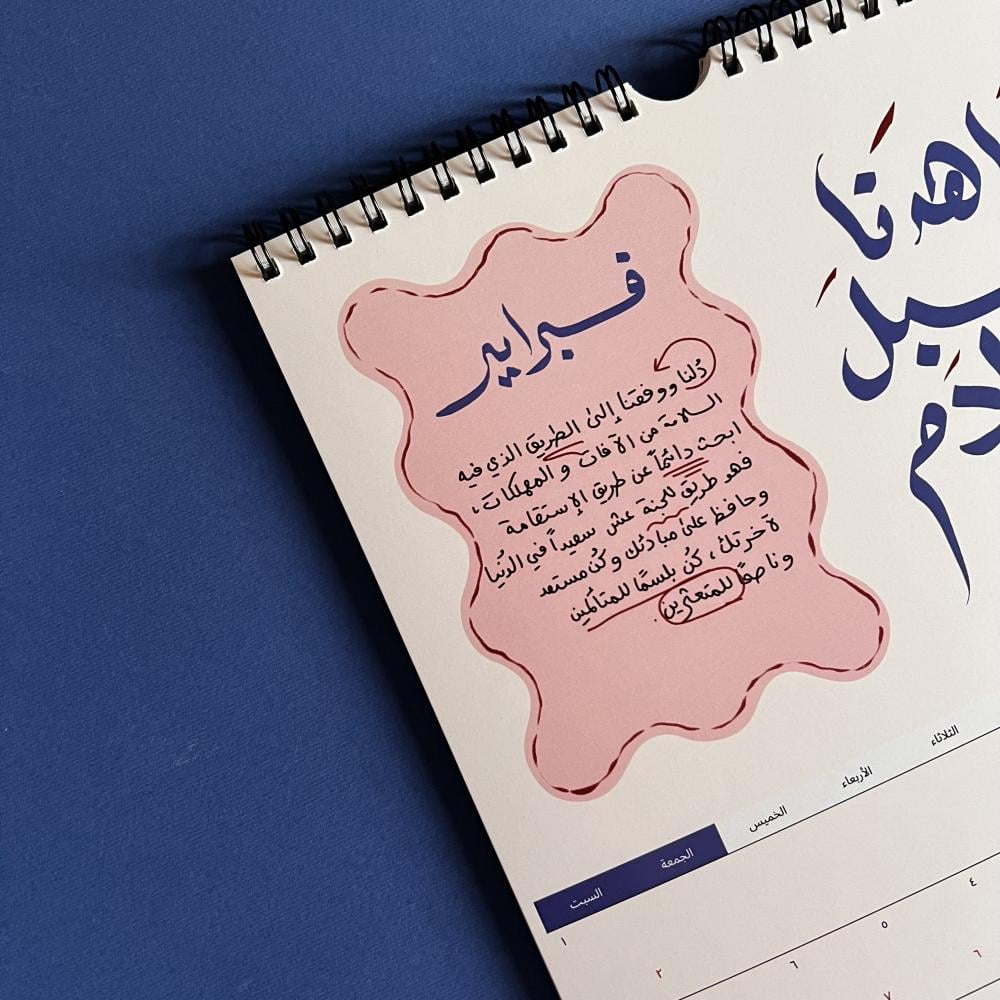 اهدنا
سبل
لام
فبراير
دُلنا ووفقنا إلى الطريق الذي فيه
السلامة من الآفات و المهلكات،
ابحث دائماً عن طريق الإستقامة
فهو طريق للجنة عش سعيداً في الدُنيا
وحافظ على مبادئك وكُن مستعد
لآخرتك، كُن بلسمًا للمتألمين
وناصحًا للمتعثرين.
الثلاثاء الأربعاء الخميس الجمعة السبت
٤ ٥ ٦ ١
٦ ٧ ٢